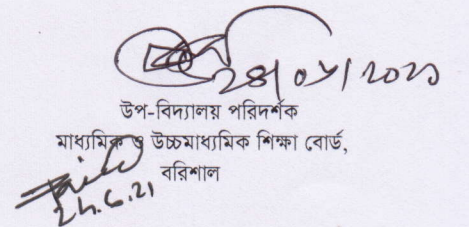 ২৪/০৬/২০২১
উপ-বিদ্যালয় পরিদর্শক
মাধ্যমিক ও উচ্চমাধ্যমিক শিক্ষা বোর্ড,
বরিশাল
24.6.21